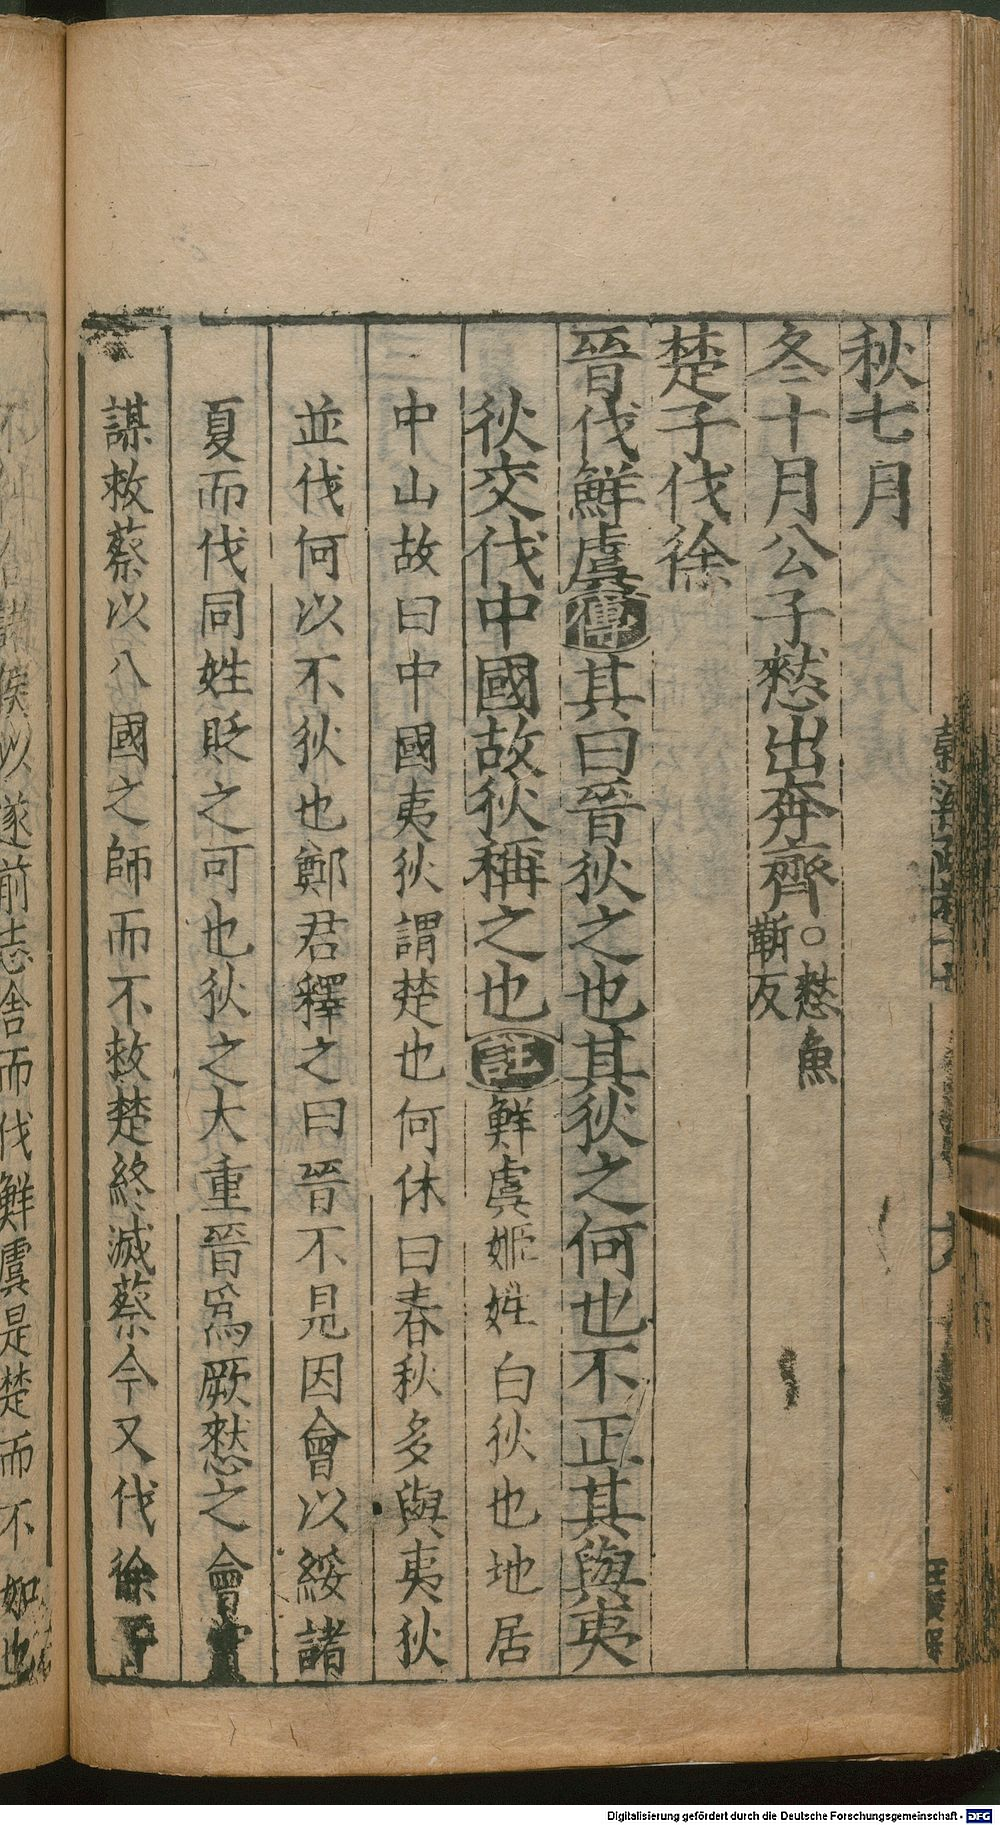 秋七月
冬十月公子憖出奔齊○憖魚
靳反
楚子伐徐
晉伐鮮虞傳其曰晉狄之也其狄之何也不正其與夷
狄交伐中國故狄稱之也註鮮虞姬姓白狄也地居
中山故曰中國夷狄謂楚也何休曰春秋多與夷狄
並伐何以不狄也鄭君釋之曰晉不見因會以綏諸
夏而伐同姓貶之可也狄之大重晉爲厥憖之會實
謀救蔡以八國之師而不救楚終滅蔡今又伐徐
前志舍而伐鮮虞是楚而不如也
Digitalisierung gefördert durch die Deutsche Forschungsgemeinschaft - DFG